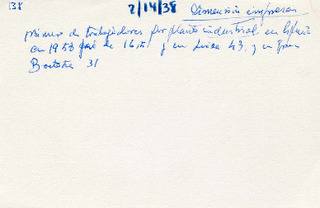 138 2/14/38 Dimensión empresas
número de trabajadores por planta industrial en España
en 1953 fué de 16, y en Suiza 43, y en Gran
Bretaña 31